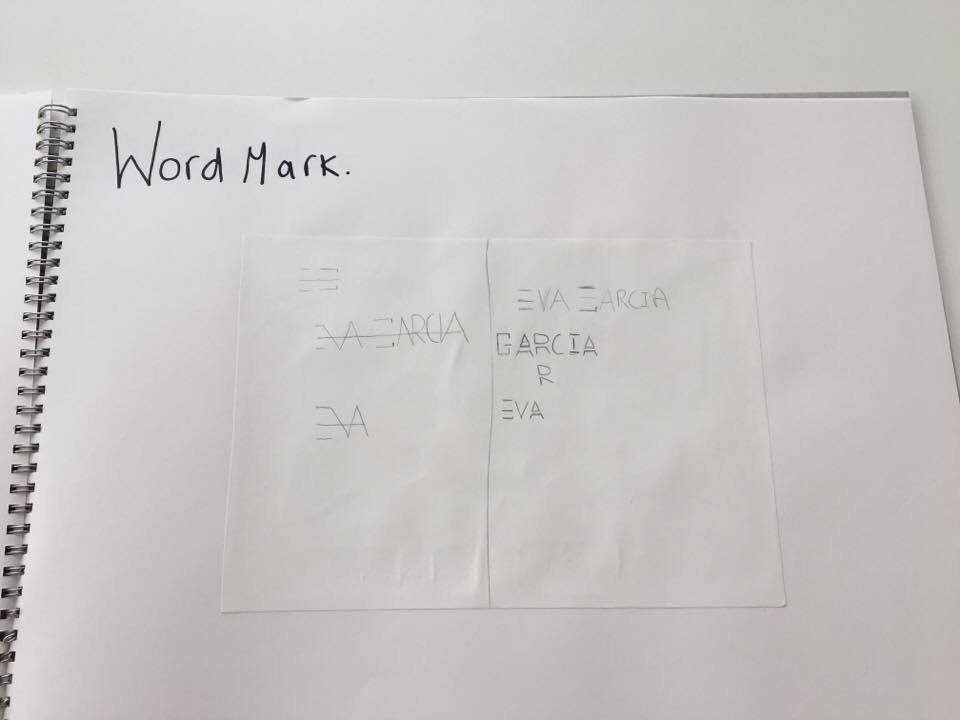 Word Mark.
EVA GARCIA
EVA
EVA GARCIA
GARCIA
R
EVA